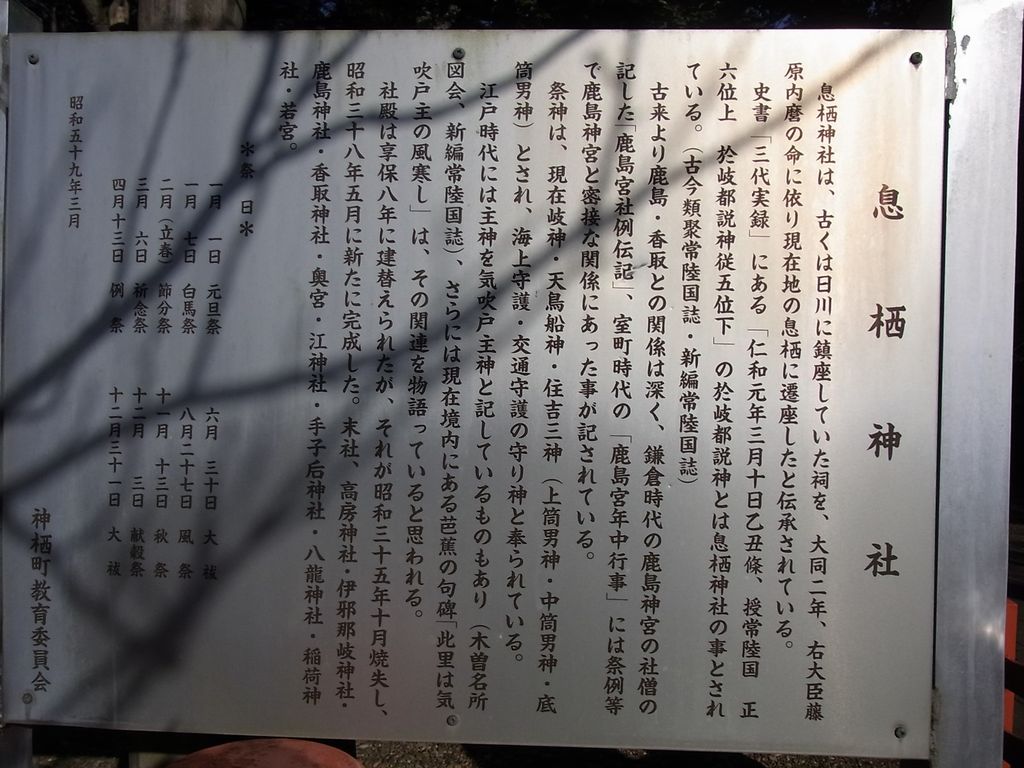 息栖神社
息栖神社は、古くは日川に鎮座していた祠を、大同二年、右大臣藤
原内麿の命に依り現在地の息栖に遷座したと伝承されている。
史書「三代実録」にある「仁和元年三月十日乙丑條、授常陸国　正
六位上　於岐都説神従五位下」の於岐都説神とは息栖神社の事とされ
ている。（古今類聚常陸国誌・新編常陸国誌）
古来より鹿島・香取との関係は深く、鎌倉時代の鹿島神宮の社僧の
記した「鹿島宮社例伝記」、室町時代の「鹿島宮年中行事」には祭例等
で鹿島神宮と密接な関係にあった事が記されている。
祭神は、現在岐神・天鳥船神・住吉三神（上筒男神・中筒男神・底
筒男神）とされ、海上守護・交通守護の守り神と奉られている。
江戸時代には主神を気吹戸主神と記しているものもあり（木曽名所
図会、新編常陸国誌）、さらには現在境内にある芭蕉の句碑「此里は気
吹戸主の風寒し」は、その関連を物語っていると思われる。
社殿は享保八年に建替えられたが、それが昭和三十五年十月焼失し、
昭和三十八年五月に新たに完成した。末社、高房神社・伊邪那岐神社・
鹿島神社・香取神社・奥宮・江神社・手子后神社・八龍神社・稲荷神
社・若宮。
＊祭　日＊
一月　一日　元旦祭　六月　三十日　大　祓
一月　七日　白馬祭　八月二十七日　風　祭
二月（立春）　節分祭　十一月　十三日　秋　祭
三月　六日　祈念祭　十二月　三日　献穀祭
四月十三日　例　祭　十二月三十一日　大　祓
昭和五十九年三月
神栖町教育委員会